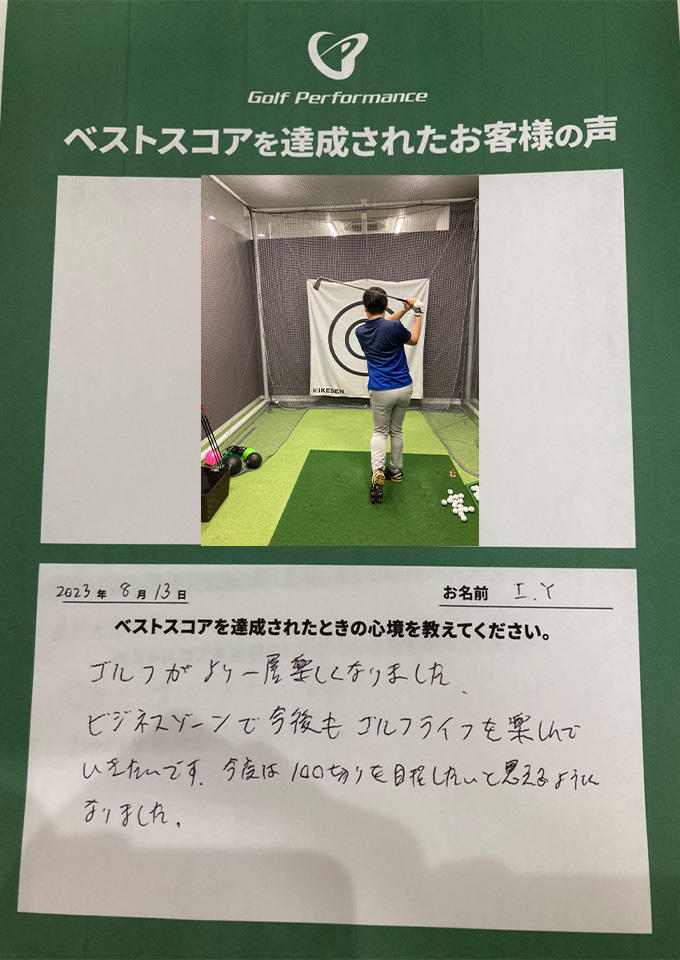 Golf Performance
ベストスコアを達成されたお客様の声
IKESEN
2023年 8月 13日
お名前 I.Y
ベストスコアを達成されたときの心境を教えてください。
ゴルフがより一層楽しくなりました.
ビジネスゾーンで今後もゴルフライフを楽しんで
いきたいです. 今度は100切りを目指したいと思えるように
なりました.